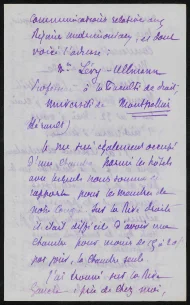 communications relative aux
Repas américains, et dont
voici l'adresse:
Mr Lévy-Ullmann
Professeur à la Faculté de droit,
Université de Montpellier
Hérault)
Je me suis également occupé
d'une chambre parmi les hôtels
avec lesquels nous sommes en
rapports pour les membres de
notre Congrès. Sur la Rive droite
il était difficile d'avoir une
chambre pour moins de 15 à 20
par jour, la chambre seule.
J'ai trouvé sur la Rive
Gauche, près de chez moi,